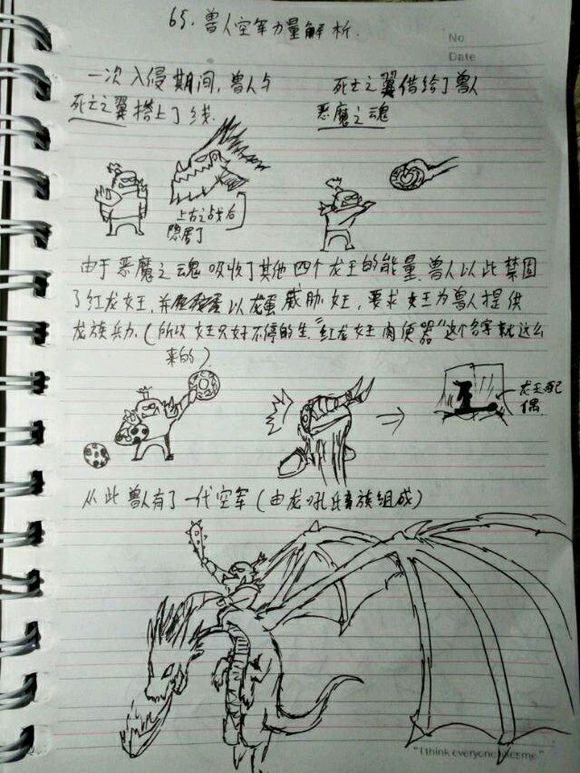 65. 兽人空军力量解析.
No
Date
一次入侵期间, 兽人与
死亡之翼搭上了线.
死亡之翼借给了兽人
恶魔之魂
上古之战后
隐居了
由于恶魔之魂吸收了其他四个龙王的能量. 兽人以此禁固
了红龙女王, 并以龙蛋威胁女王, 要求女王为兽人提供
龙族兵力. (所以女王只好不停的生. "红龙女王肉便器"这个名字就这么
来的)
龙王配
偶
从此兽人有了一代空军 (由龙吼氏族组成)
"I think everyone likes me"